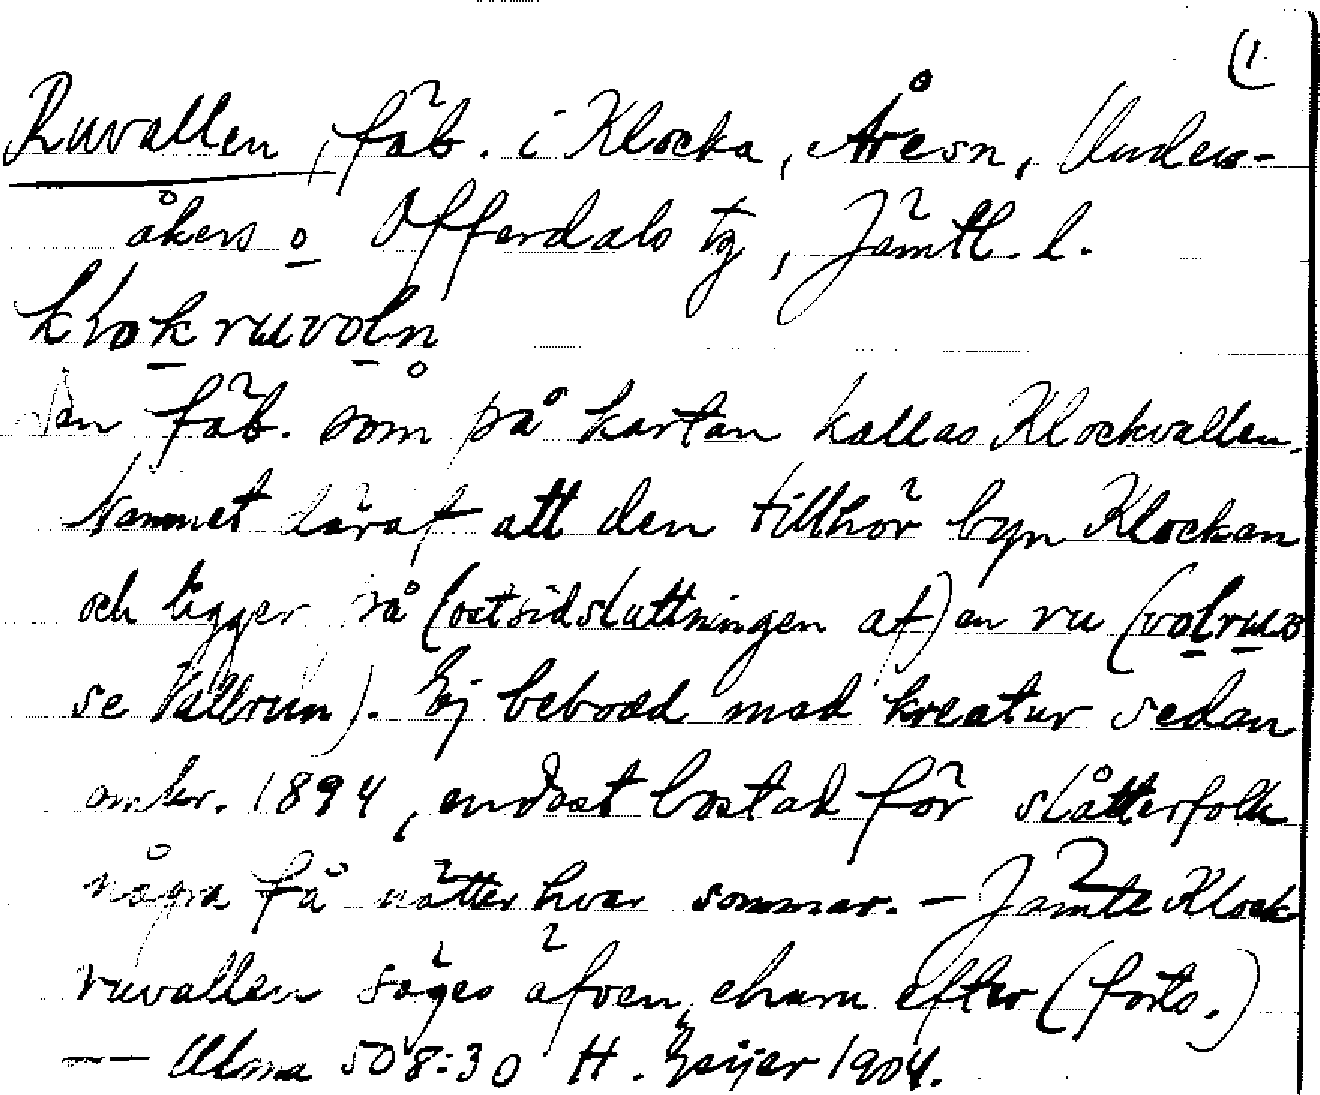 (1.
Ruvallen, fäb. i Klocka, Åresn, Under-
åkers o Offerdals tg, Jämtl. l.
klokruvoln
Den fäb. som på kartan kallas Klockvallen.
Namnet däraf att den tillhör byn Klockan
och ligger på (ostsidsluttningen af) en ru (volruo
se Vallrun). Ej bebodd med kreatur sedan
omkr. 1894, endast bostad för slåtterfolk
några få nätter hvar sommar. – Jämte Klock
ruvallen säges äfven, ehuru efter (forts.)
—— Alma 508:30 H. Geijer 1904.